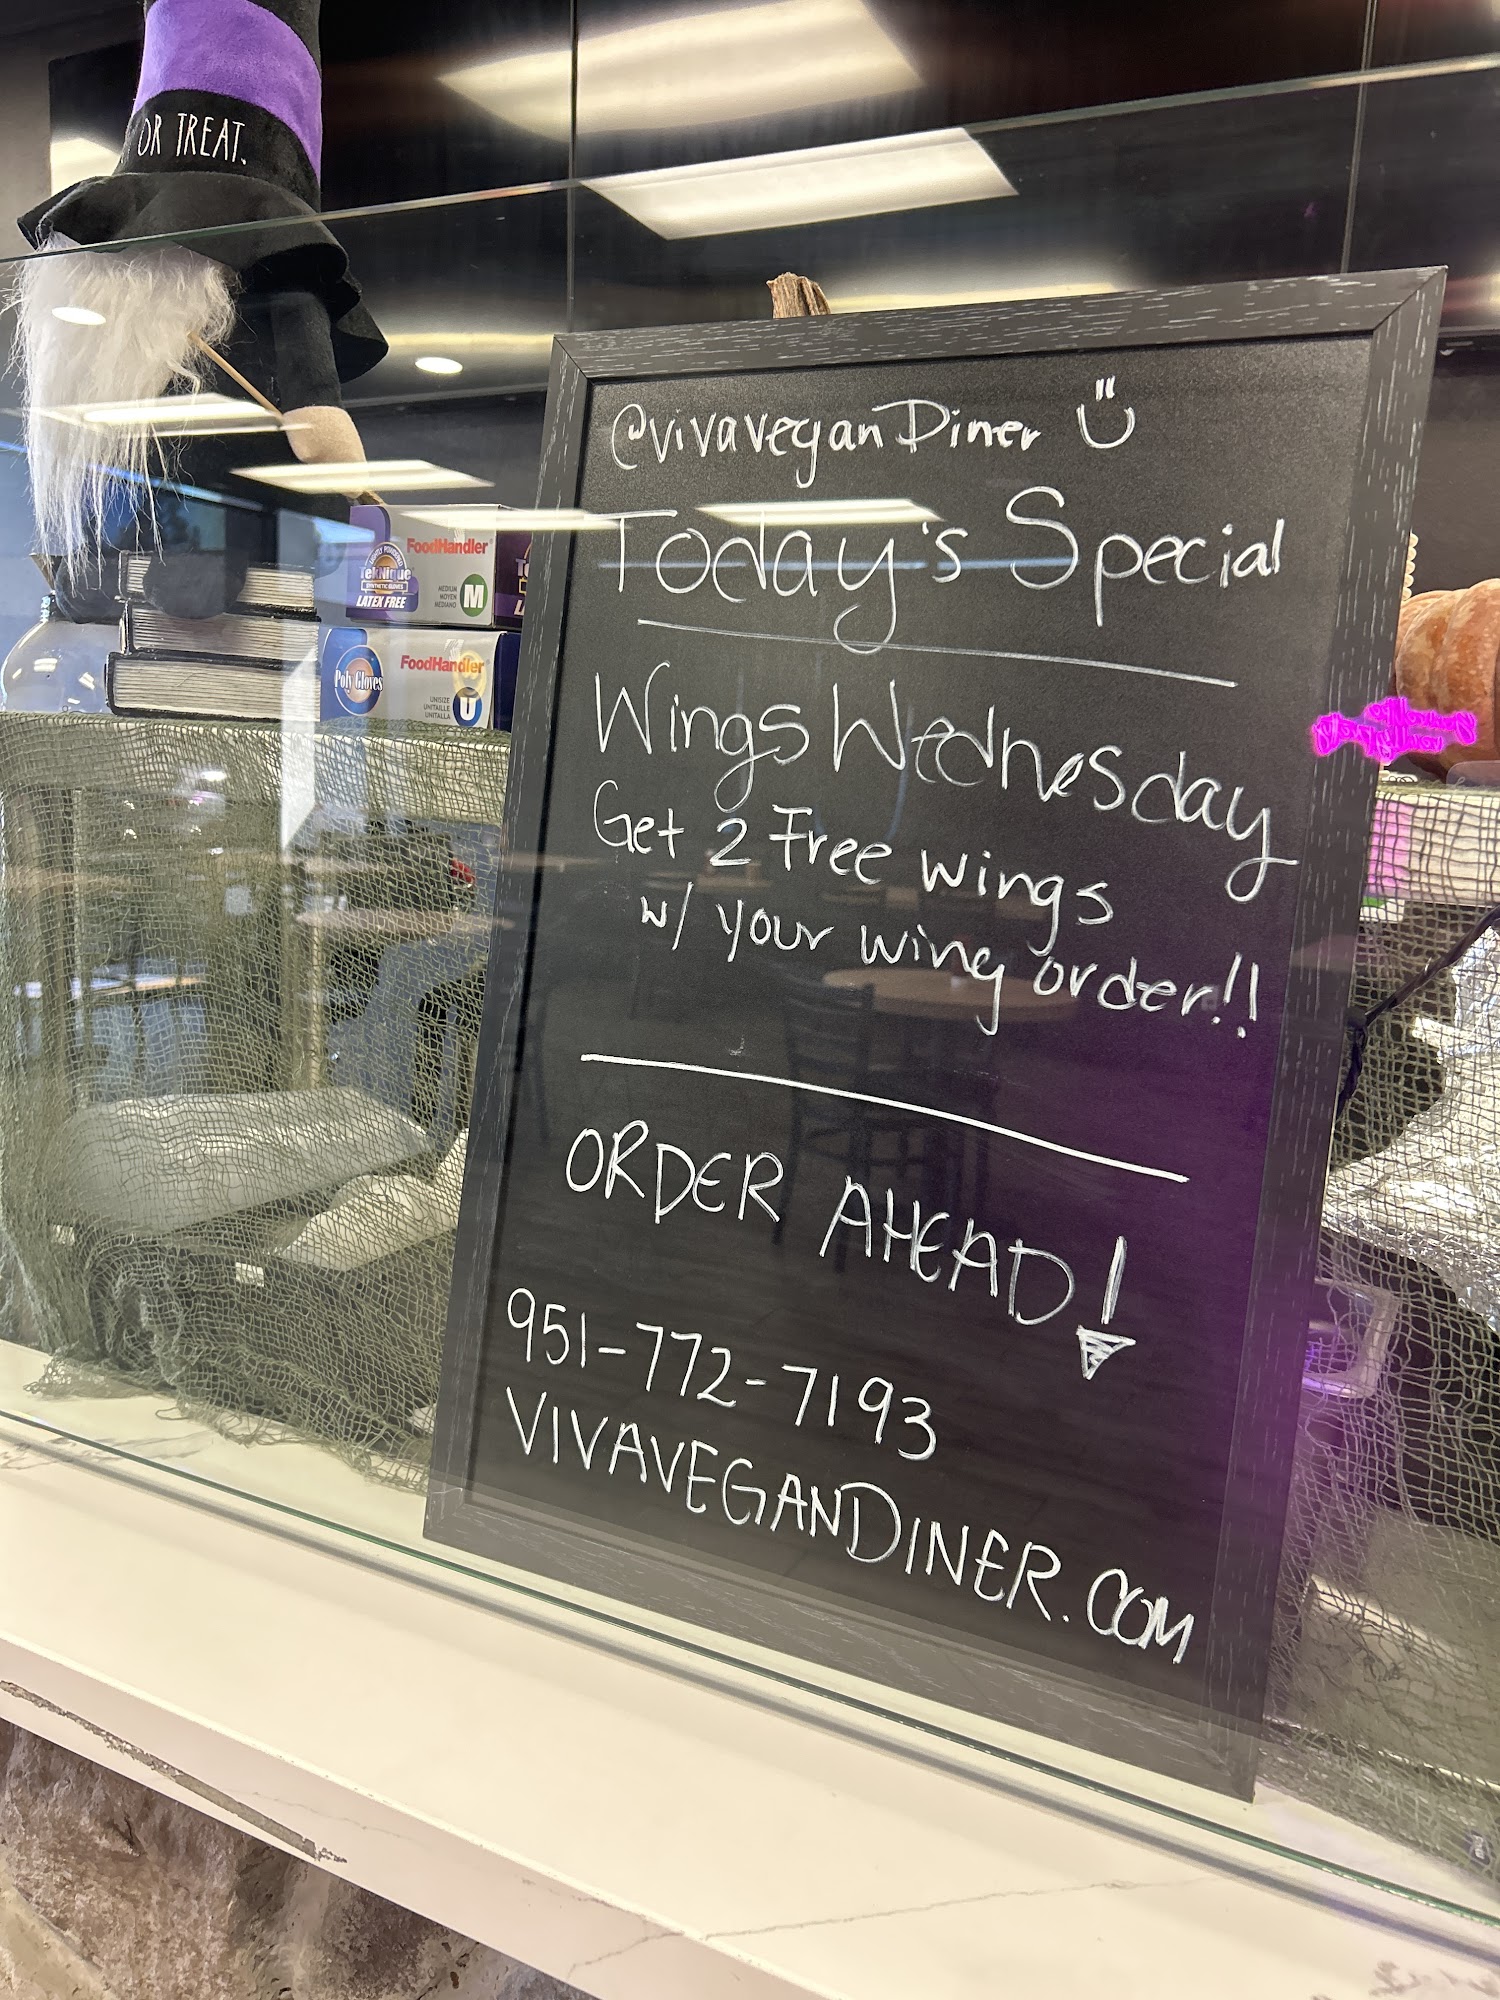 OR TREAT.
@vivaveganDiner
Today's Special
Wings Wednesday
Get 2 Free wings
w/ your wing order!!
ORDER AHEAD!
951-772-7193
VIVAVEGANDINER.COM
FoodHandler
TekNique
SYNTHETIC GLOVES
LATEX FREE
MEDIUM
MOYEN
MEDIANO
M
FoodHandler
Poly Gloves
UNISIZE
UNITAILLE
UNITALLA
U